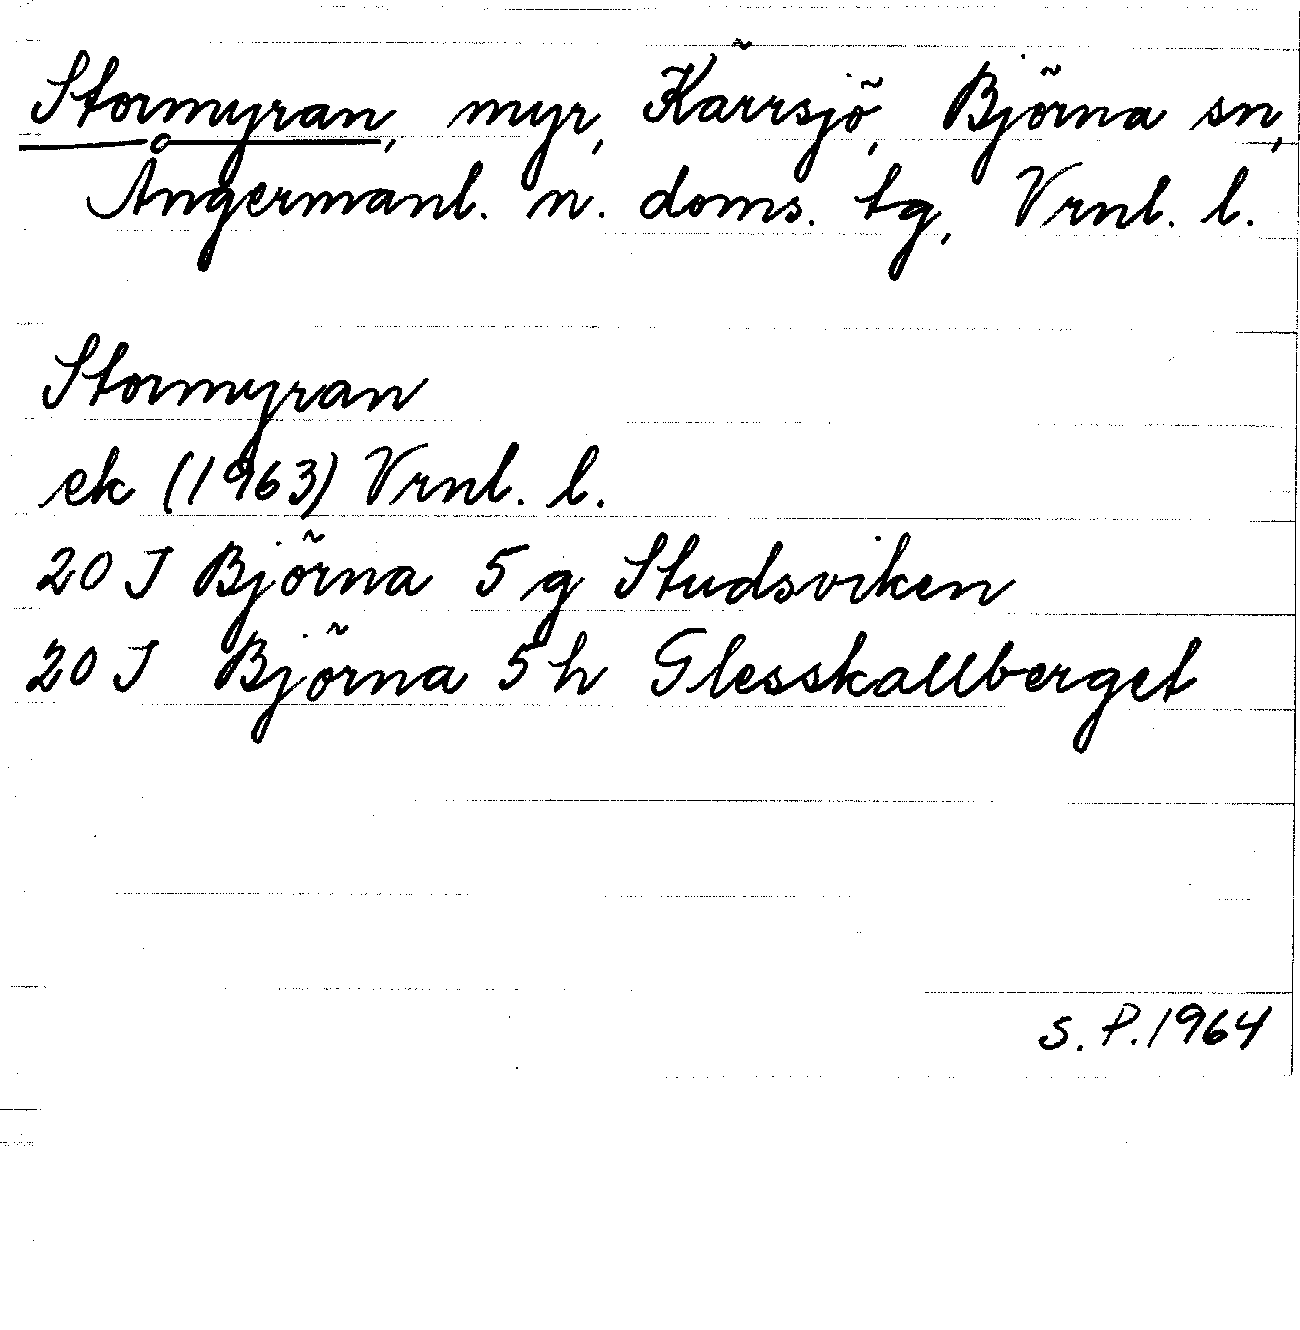 Stormyran, myr, Kärrsjö, Björna sn,
Ångermanl. n. doms. tg, Vrnl. l.
Stormyran
ek (1963) Vrnl. l.
20 J Björna 5 g Studsviken
20 J Björna 5 h Glesskallberget
S. P. 1964